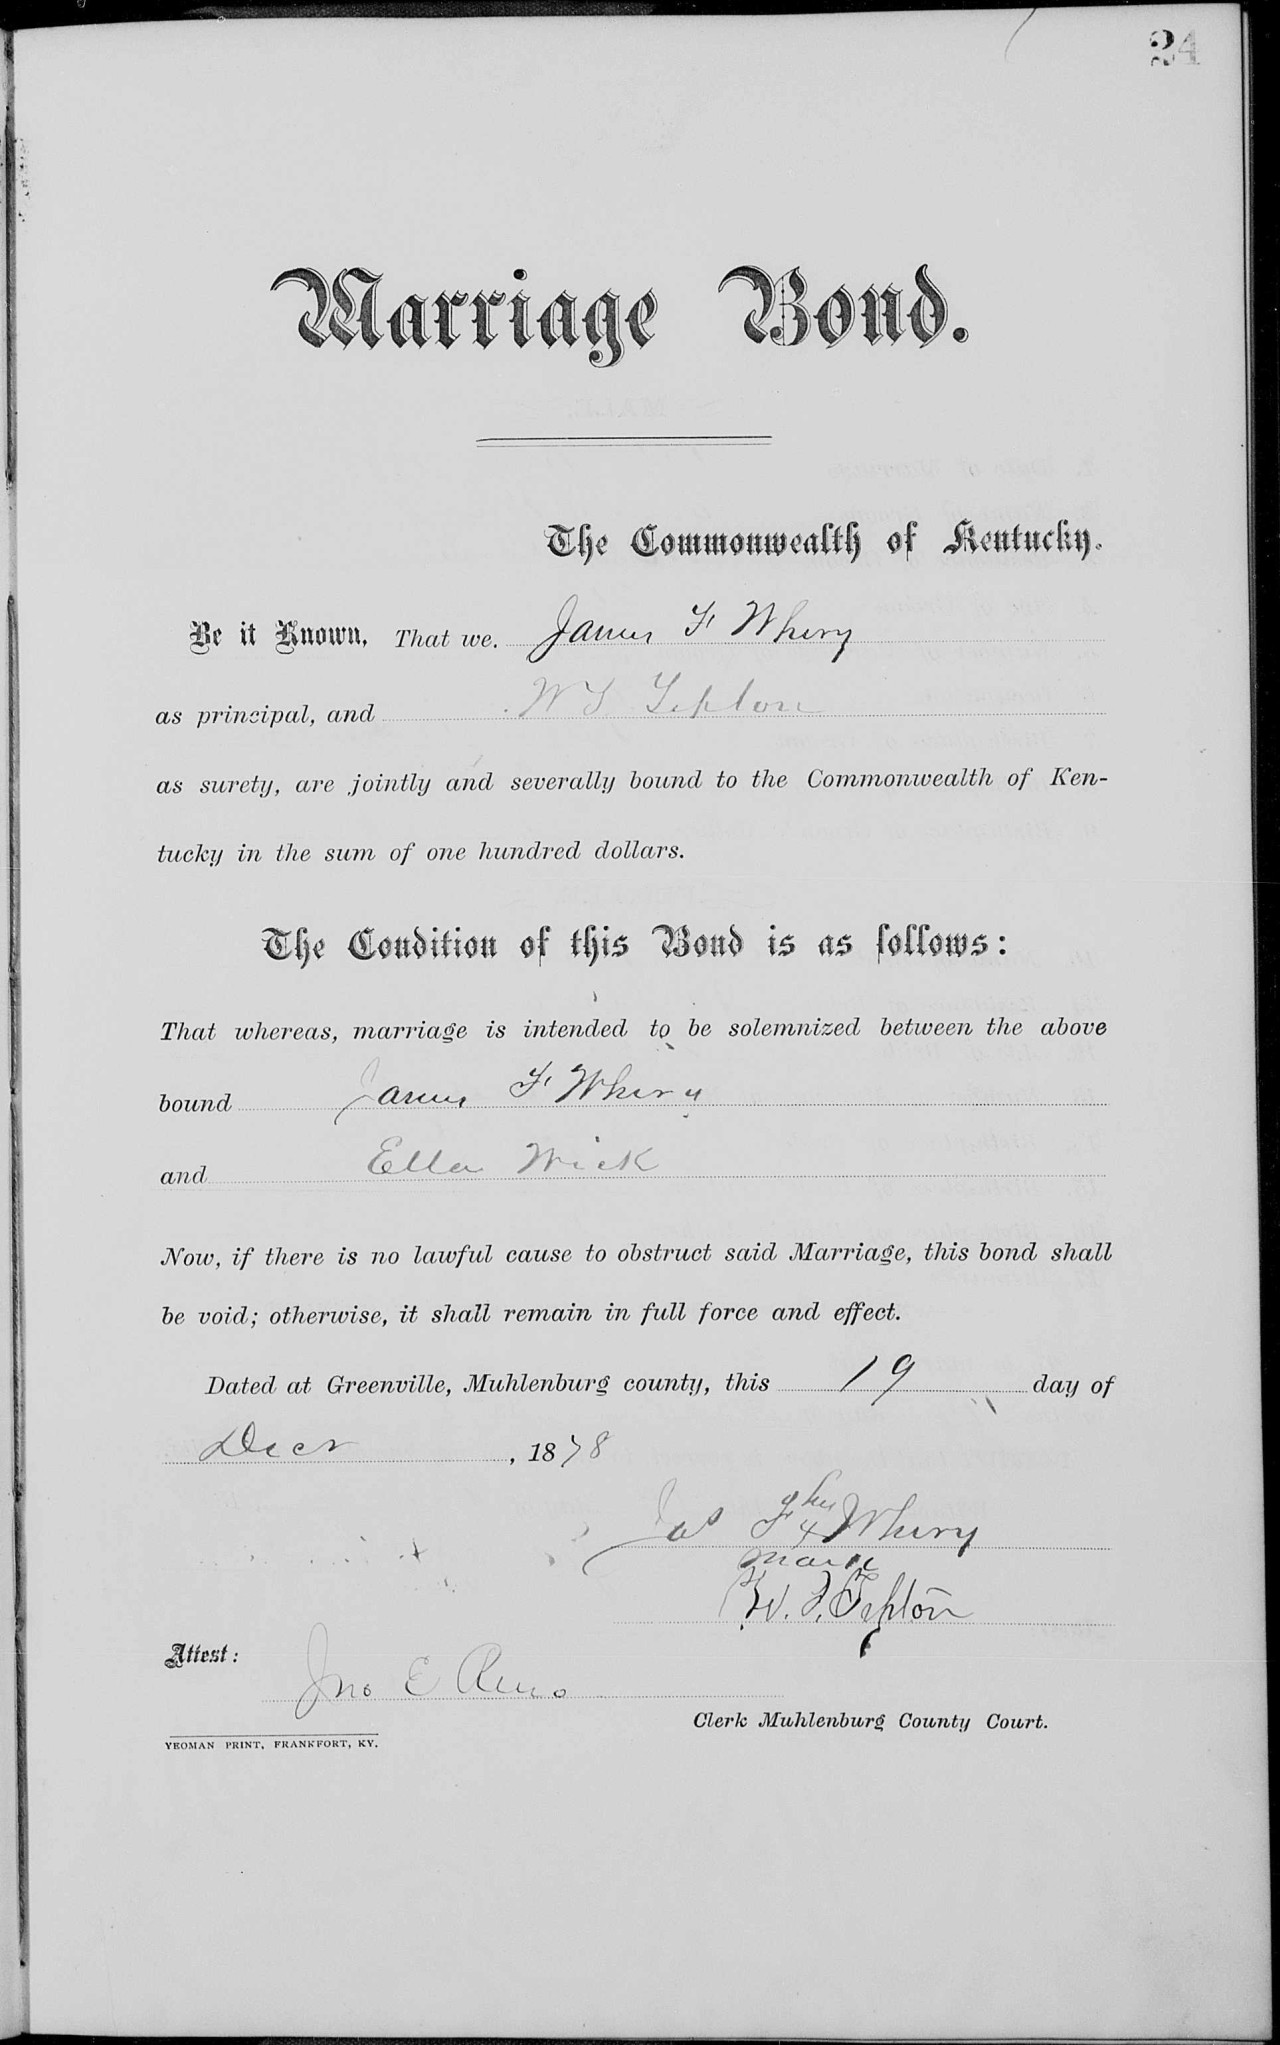 24
Marriage Bond.
The Commonwealth of Kentucky.
Be it Known, That we, James F Whery
as principal, and W T Tipton
as surety, are jointly and severally bound to the Commonwealth of Ken-
tucky in the sum of one hundred dollars.
The Condition of this Bond is as follows:
That whereas, marriage is intended to be solemnized between the above
bound James F Whery
and Ella Wick
Now, if there is no lawful cause to obstruct said Marriage, this bond shall
be void; otherwise, it shall remain in full force and effect.
Dated at Greenville, Muhlenburg county, this 19 day of
Decr, 1878
his
Jas F x Whery
mark
W. T. Tipton
Attest:
Jno E Reno
Clerk Muhlenburg County Court.
YEOMAN PRINT, FRANKFORT, KY.